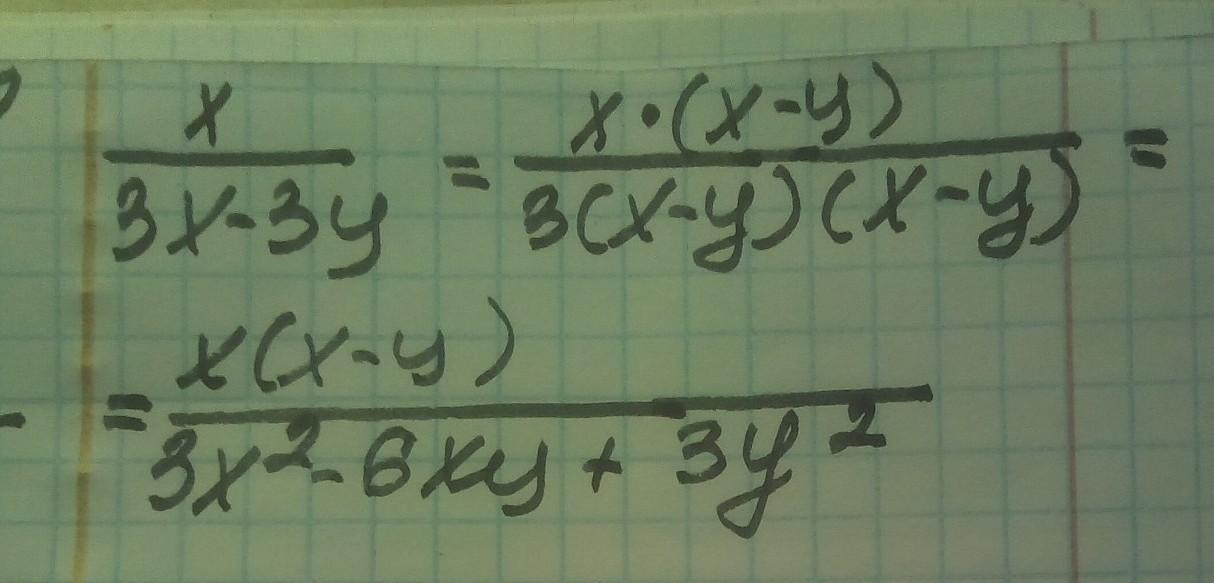 x/(3x-3y) = x·(x-y)/(3(x-y)(x-y)) =
= x(x-y)/(3x²-6xy+3y²)